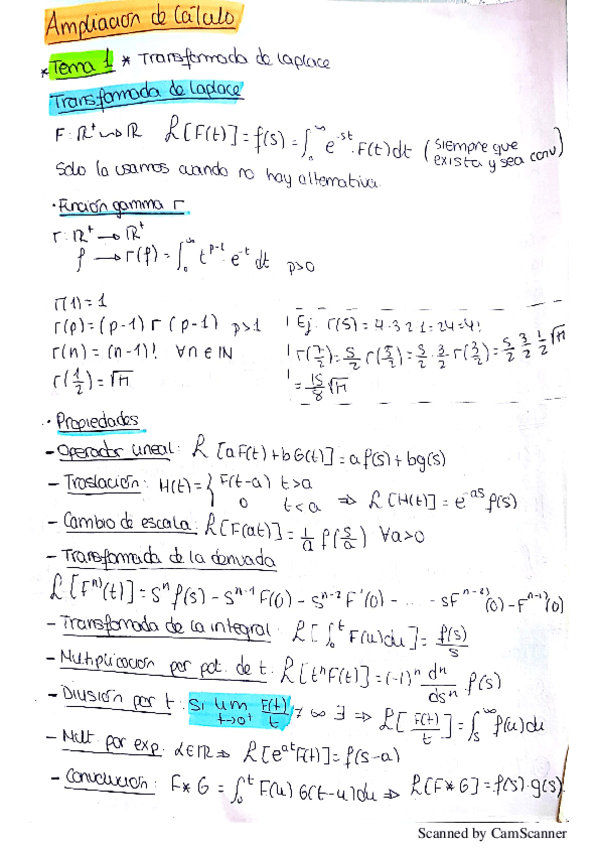 Ampliación de Cálculo
* Tema 1 * Transformada de Laplace
Transformada de Laplace
F: ℝ⁺ ⟿ ℝ ℒ[F(t)] = f(s) = ∫₀^∞ e^(-st) · F(t)dt (siempre que exista y sea conv)
Solo la usamos cuando no hay alternativa.
· Función gamma Γ
Γ: ℝ⁺ → ℝ⁺
p → Γ(p) = ∫₀^∞ t^(p-1) · e^(-t) dt p>0
Γ(1) = 1
Γ(p) = (p-1) Γ(p-1) p>1 Ej. Γ(5) = 4·3·2·1 = 24 = 4!
Γ(n) = (n-1)! ∀n ∈ ℕ Γ(7/2) = 5/2 Γ(5/2) = 5/2 · 3/2 Γ(3/2) = 5/2 3/2 1/2 √π
Γ(1/2) = √π = 15/8 √π
· Propiedades
- Operador lineal: ℒ[aF(t)+bG(t)] = af(s)+bg(s)
- Traslación: H(t) = { F(t-a) t>a
0 t<a ⇒ ℒ[H(t)] = e^(-as) f(s)
- Cambio de escala: ℒ[F(at)] = 1/a f(s/a) ∀a>0
- Transformada de la derivada
ℒ[F^n)(t)] = s^n f(s) - s^(n-1) F(0) - s^(n-2) F'(0) - ... - sF^(n-2)(0) - F^(n-1)(0)
- Transformada de la integral: ℒ[∫₀^t F(u)du] = f(s)/s
- Multiplicación por pot. de t: ℒ[t^n F(t)] = (-1)^n d^n/ds^n f(s)
- División por t: Si lim t→0⁺ F(t)/t ≠ ∞ ∃ ⇒ ℒ[F(t)/t] = ∫_s^∞ f(u)du
- Mult. por exp. α∈ℝ ⇒ ℒ[e^(at)F(t)] = f(s-a)
- Convolución: F*G = ∫₀^t F(u) G(t-u)du ⇒ ℒ[F*G] = f(s)·g(s)
Scanned by CamScanner